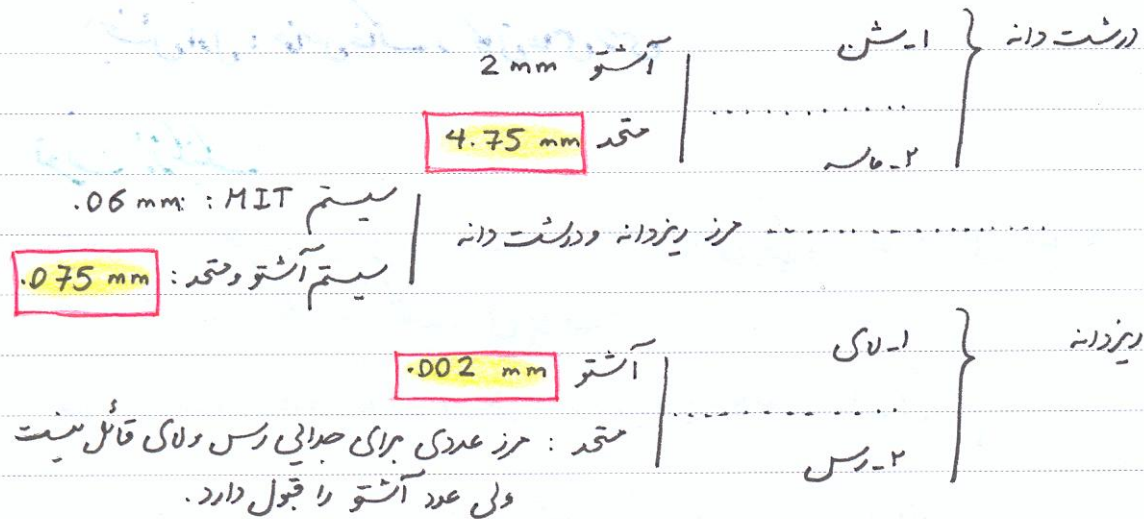 درشت دانه
۱ـ شن
آشتو 2 mm
متحد 4.75 mm
۲ـ ماسه
مرز ریزدانه و درشت دانه
سیستم MIT : .06 mm
سیستم آشتو و متحد : .075 mm
ریزدانه
۱ـ لای
آشتو .002 mm
۲ـ رس
متحد : مرز عددی برای جدایی رس و لای قائل نیست
ولی عدد آشتو را قبول دارد.